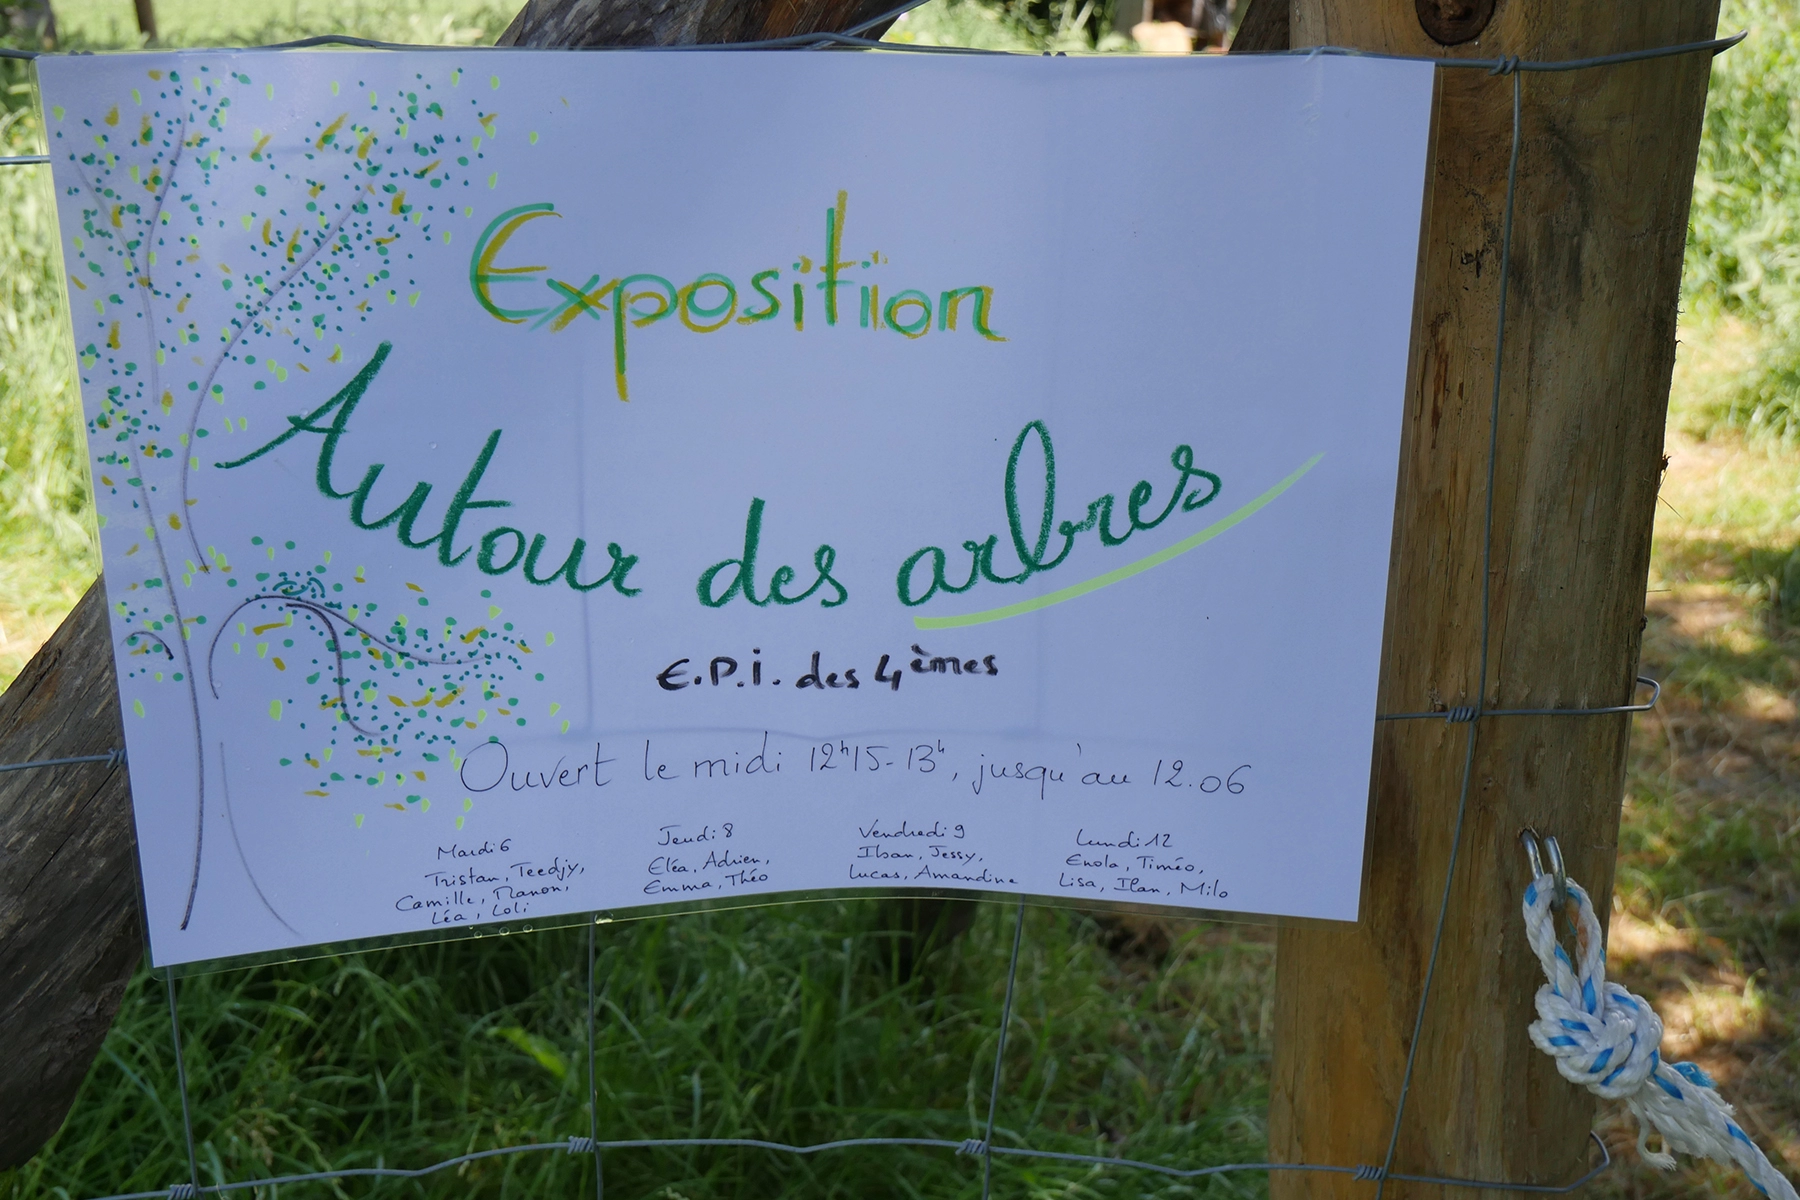 Exposition
Autour des arbres
E.P.I. des 4èmes
Ouvert le midi 12h15-13h, jusqu'au 12.06
Mardi 6
Tristan, Teedjy,
Camille, Manon,
Léa, Loli
Jeudi 8
Eléa, Adrien,
Emma, Théo
Vendredi 9
Iban, Jessy,
Lucas, Amandine
Lundi 12
Enola, Timéo,
Lisa, Ilan, Milo